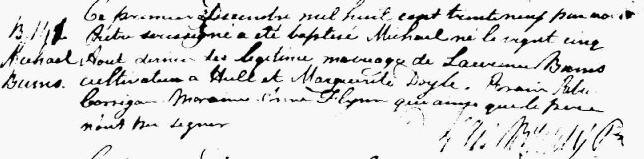 Ce premier Décembre mil huit cent trente neuf par nous
B. 141 Prêtre soussigné a été baptisé Michael né le vingt cinq
Michael Aout dernier du légitime mariage de Lawrence Burns
Burns. cultivateur à Hull et Marguerite Doyle. Parain
Corrigan Maraine Flynn qui ainsi que le pere
n'ont su signer